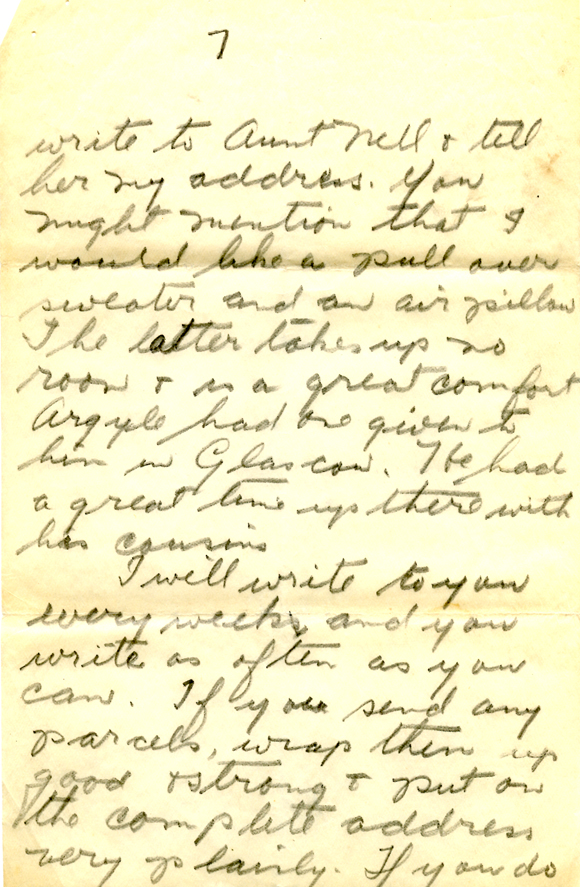 7
write to Aunt Nell & tell
her my address. You
might mention that I
would like a pull over
sweater and an air pillow
The latter takes up no
room & is a great comfort
Argyle had one given to
him in Glascow. He had
a great time up there with
his cousins
I will write to you
every week, and you
write as often as you
can. If you send any
parcels, wrap them up
good & strong & put on
the complete address
very plainly. If you do